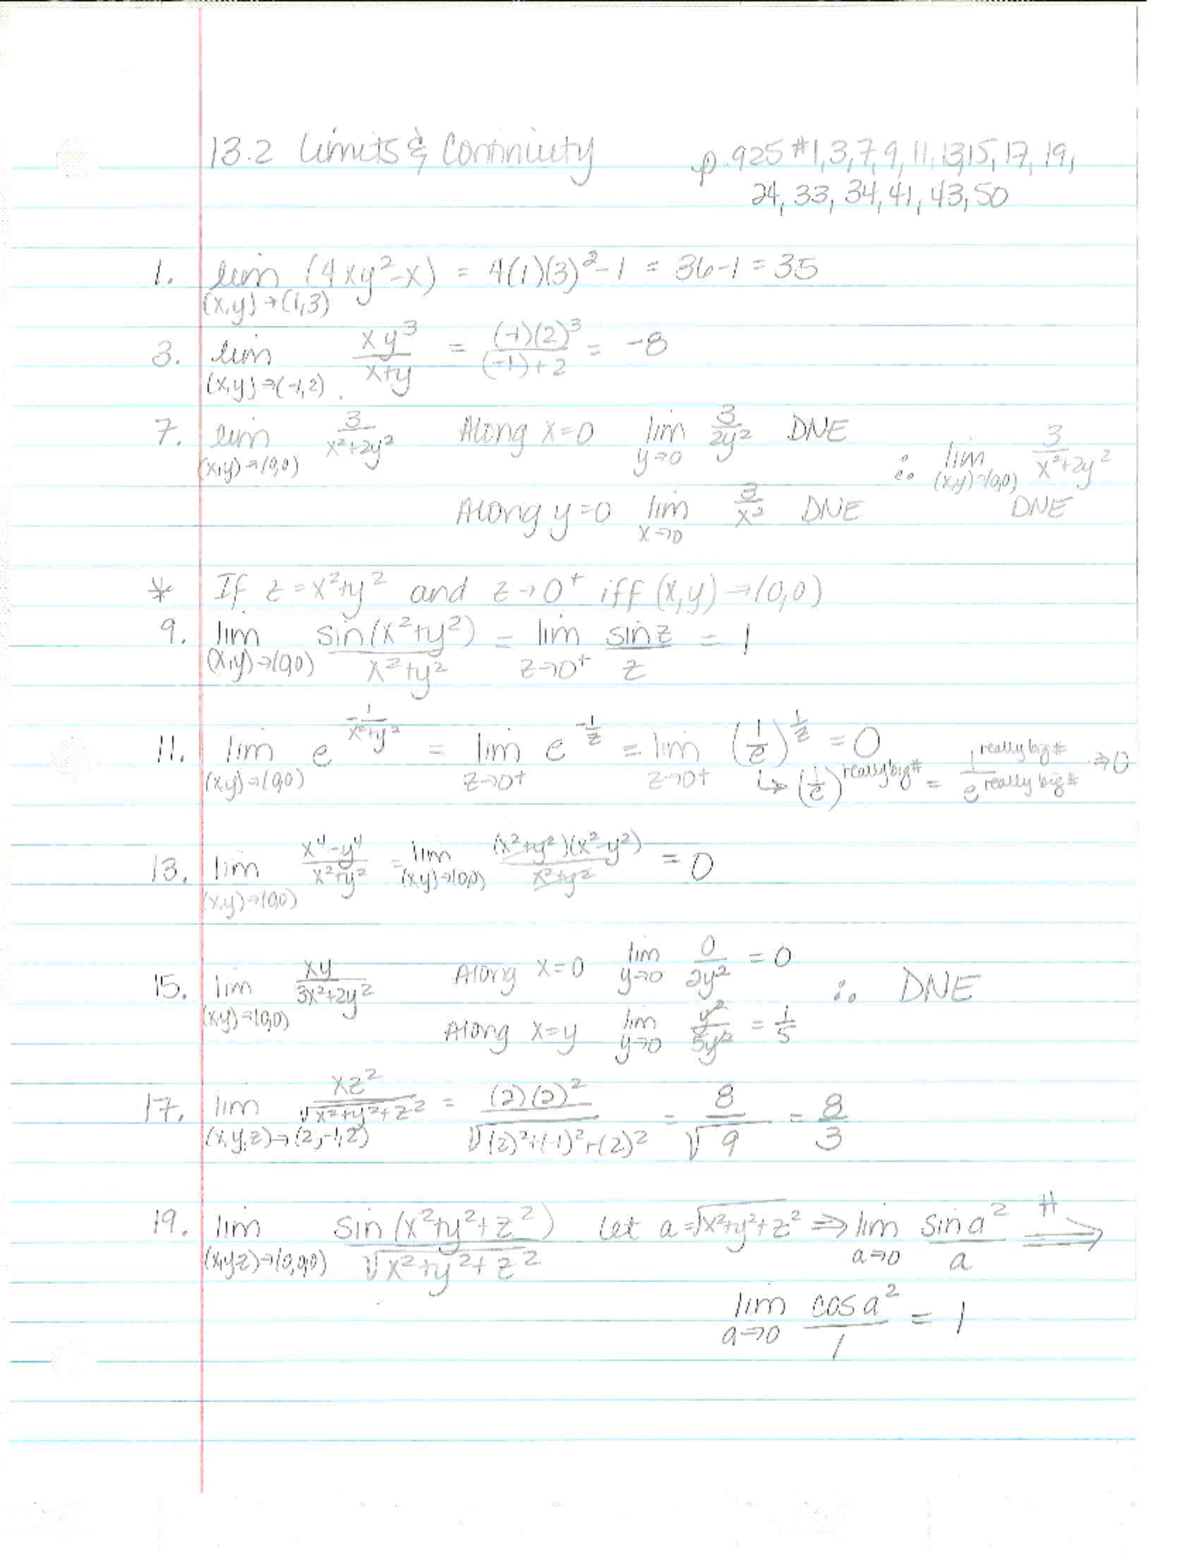 13.2 Limits & Continuity p.925 #1,3,7,9,11,13,15,17,19,
24, 33, 34, 41, 43, 50
1. lim (x,y)→(1,3) (4xy²-x) = 4(1)(3)²-1 = 36-1 = 35
3. lim (x,y)→(-1,2) xy³/(x+y) = (-1)(2)³/((-1)+2) = -8
7. lim (x,y)→(0,0) 3/(x²+2y²) Along x=0 lim y→0 3/(2y²) DNE
∴ lim (x,y)→(0,0) 3/(x²+2y²) DNE
Along y=0 lim x→0 3/x² DNE
* If z=x²+y² and z→0⁺ iff (x,y)→(0,0)
9. lim (x,y)→(0,0) sin(x²+y²)/(x²+y²) = lim z→0⁺ sinz/z = 1
11. lim (x,y)→(0,0) e^(-1/(x²+y²)) = lim z→0⁺ e^(-1/z) = lim z→0⁺ (1/e)^(1/z) = 0
↳ (1/e)^(really big #) = 1^(really big #)/e^(really big #) ⇒ 0
13. lim (x,y)→(0,0) (x⁴-y⁴)/(x²+y²) = lim (x,y)→(0,0) (x²+y²)(x²-y²)/(x²+y²) = 0
15. lim (x,y)→(0,0) xy/(3x²+2y²) Along x=0 lim y→0 0/(2y²) = 0
∴ DNE
Along x=y lim y→0 y²/(5y²) = 1/5
17. lim (x,y,z)→(2,-1,2) xz²/√(x²+y²+z²) = (2)(2)²/√((2)²+(-1)²+(2)²) = 8/√9 = 8/3
19. lim (x,y,z)→(0,0,0) sin(x²+y²+z²)/√(x²+y²+z²) Let a=√(x²+y²+z²) ⇒ lim a→0 sin a²/a H⇒
lim a→0 cos a²/1 = 1